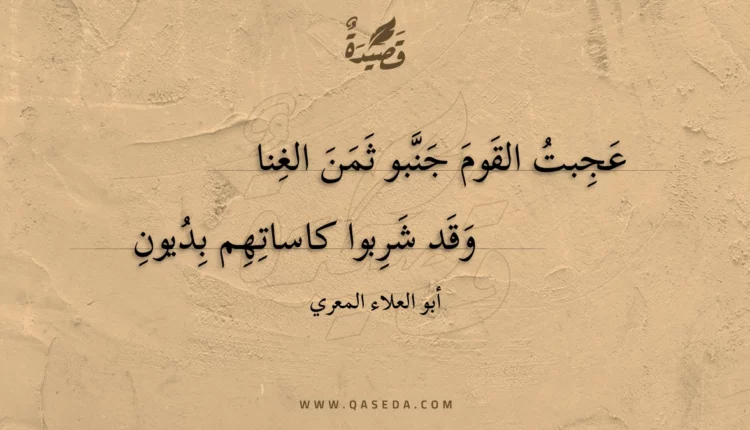 قَصِيدَةٌ
عَجِبتُ القَومَ جَنَّبو ثَمَنَ الغِنا
وَقَد شَرِبوا كاساتِهِم بِدُيونِ
أبو العلاء المعري
WWW.QASEDA.COM